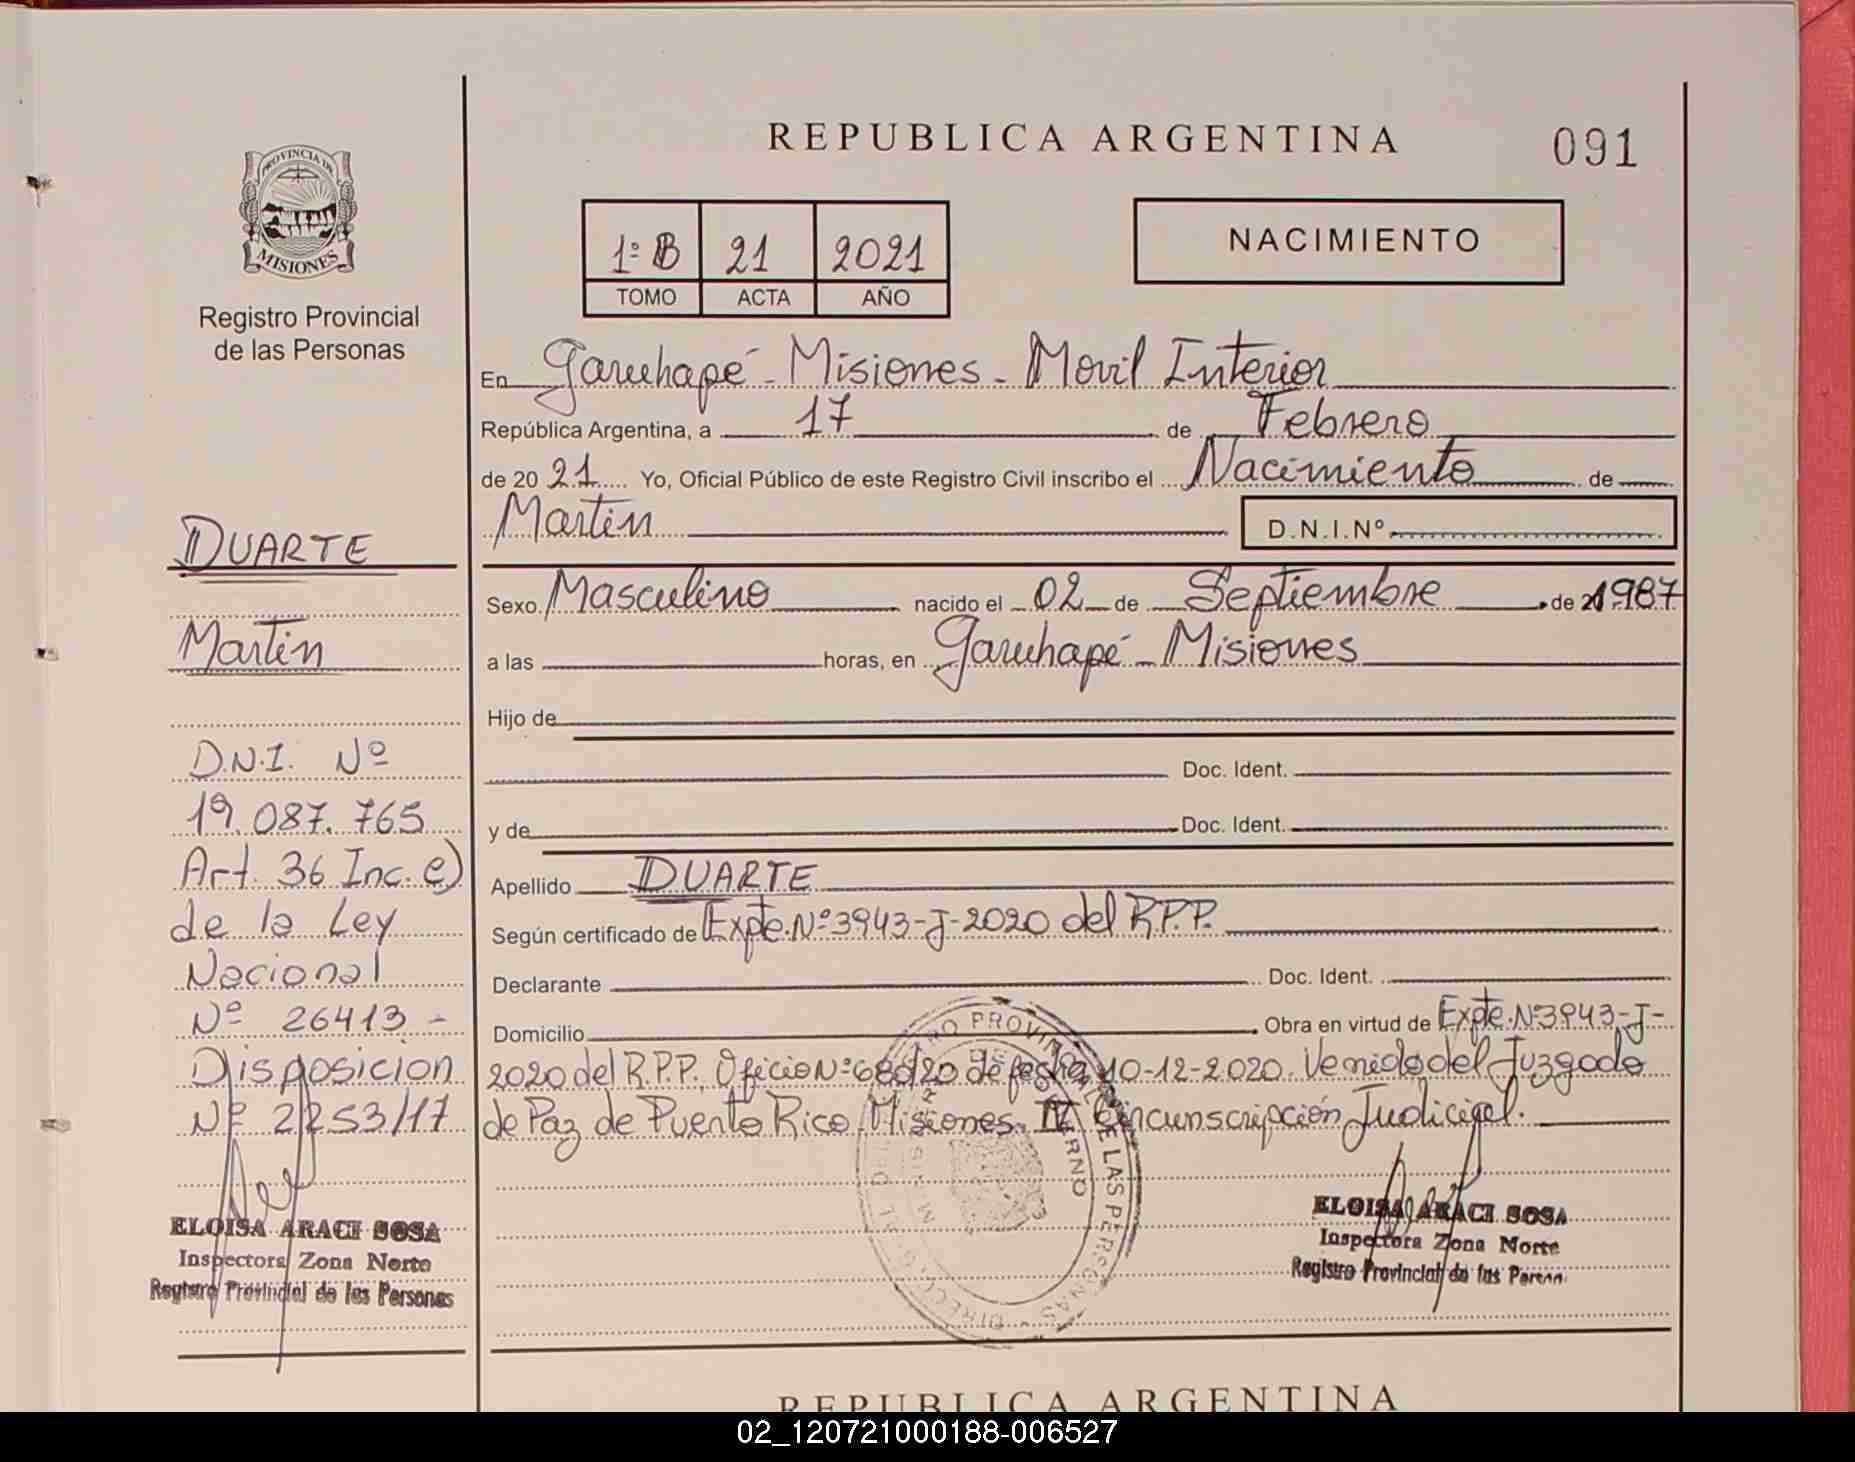 REPUBLICA ARGENTINA
091
PROVINCIA DE
MISIONES
Registro Provincial
de las Personas
1º B 21 2021
TOMO ACTA AÑO
NACIMIENTO
En Garuhapé - Misiones - Movil Interior
República Argentina, a 17 de Febrero
de 20 21 Yo, Oficial Público de este Registro Civil inscribo el Nacimiento de
Martin D.N.I.Nº
Sexo Masculino nacido el 02 de Septiembre de 1987
a las horas, en Garuhapé - Misiones
Hijo de
Doc. Ident.
y de Doc. Ident.
Apellido DUARTE
Según certificado de Expte. Nº 3943-J-2020 del R.P.P.
Declarante Doc. Ident.
Domicilio Obra en virtud de Expte. Nº 3943-J-
2020 del R.P.P. Oficio Nº 680/20 de fecha 10-12-2020. Venido del Juzgado
de Paz de Puerto Rico Misiones. IV Circunscripción Judicial.
DUARTE
Martin
D.N.I. Nº
19.087.765
Art. 36 Inc. e)
de la Ley
Nacional
Nº 26413 -
Disposicion
Nº 2253/17
ELOISA ARACI SOSA
Inspectora Zona Norte
Registro Provincial de las Personas
ELOISA ARACI SOSA
Inspectora Zona Norte
Registro Provincial de las Person
REPUBLICA ARGENTINA
02_120721000188-006527